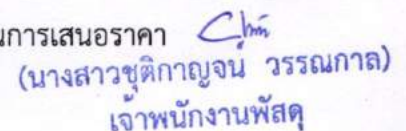 นการเสนอราคา
(นางสาวชุติกาญจน์ วรรณกาล)
เจ้าพนักงานพัสดุ